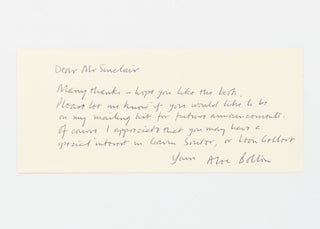 Dear Mr Sinclair
Many thanks – hope you like the book.
Please let me know if you would like to be
on my mailing list for future announcements.
Of course I appreciate that you may have a
special interest in Gavin Souter, or Leon Gellert
Yours Alec Bolton